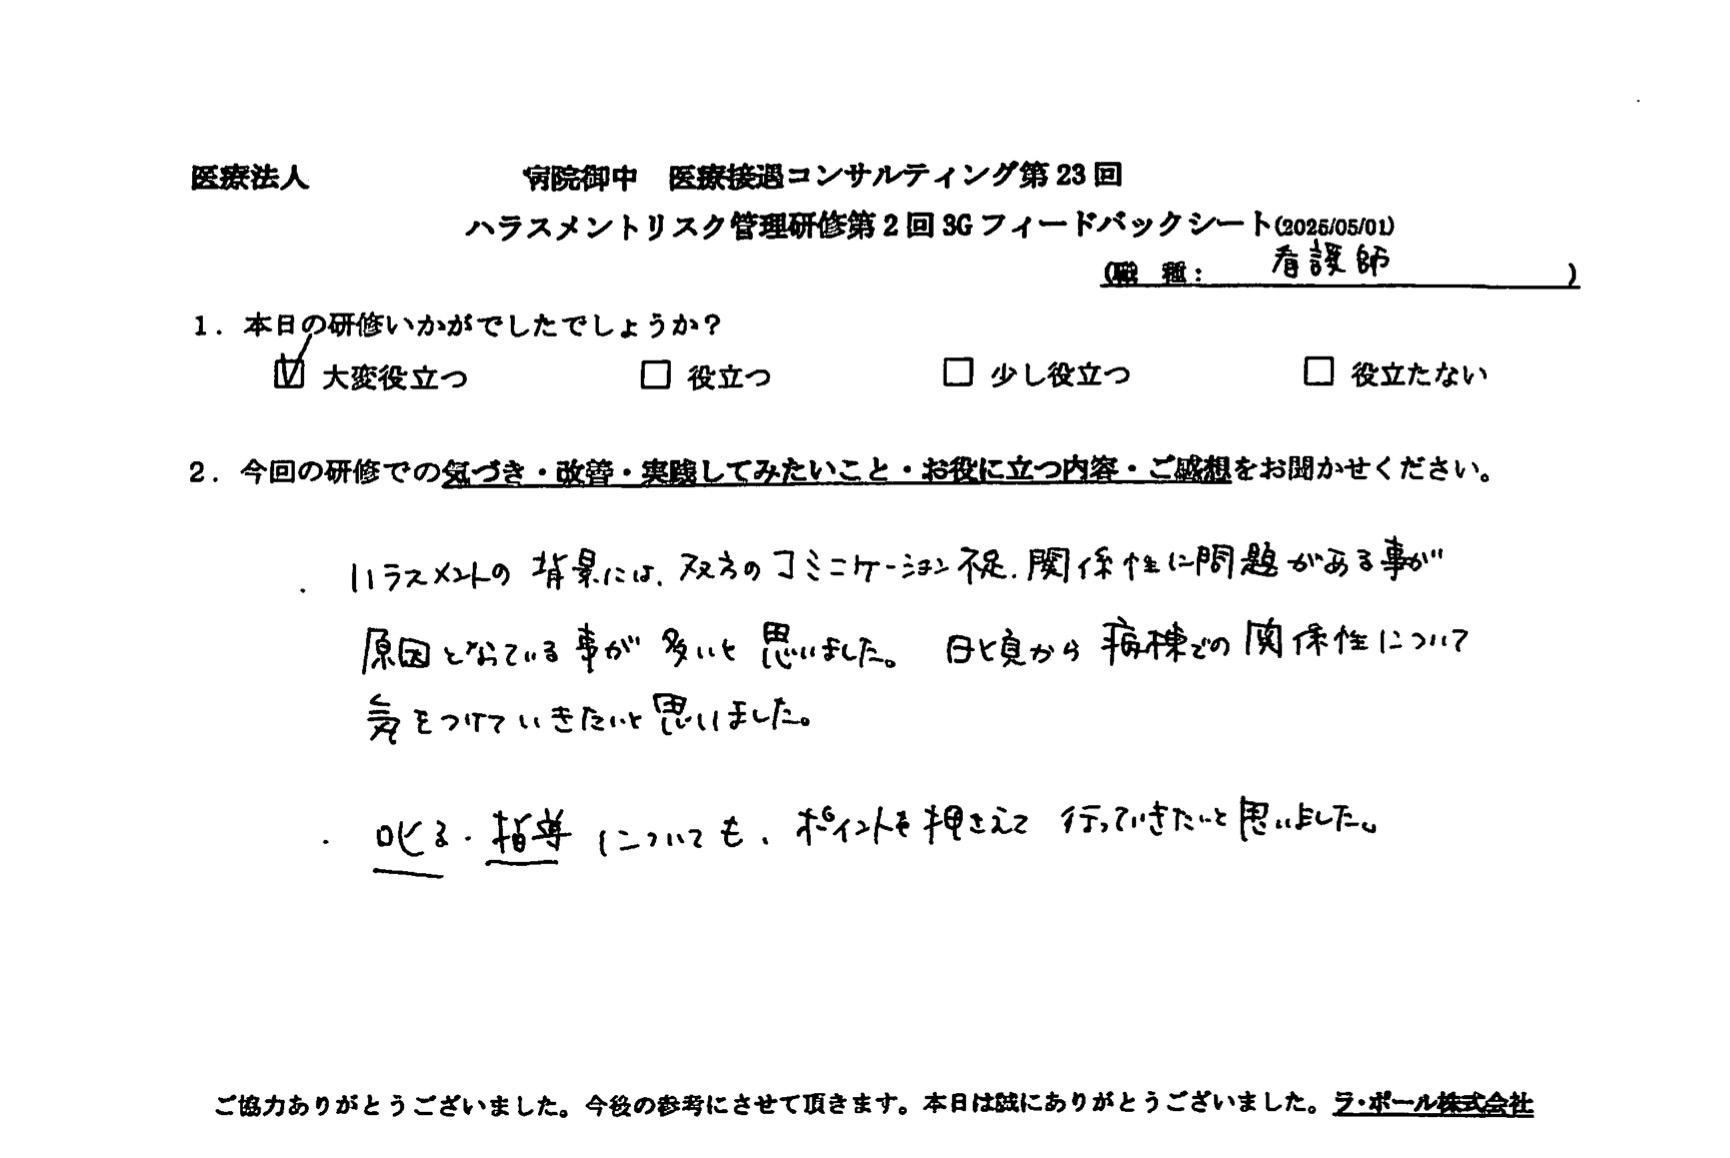 医療法人　病院御中　医療接遇コンサルティング第23回
ハラスメントリスク管理研修第2回3Gフィードバックシート(2025/05/01)
(職　種：　看護師　)
1．本日の研修いかがでしたでしょうか？
☑ 大変役立つ　□ 役立つ　□ 少し役立つ　□ 役立たない
2．今回の研修での気づき・改善・実践してみたいこと・お役に立つ内容・ご感想をお聞かせください。
・ハラスメントの背景には、双方のコミニケーション不足、関係性に問題がある事が
原因となっている事が多いと思いました。日と頃から病棟での関係性について
気をつけていきたいと思いました。
・叱る・指導についても、ポイントを押さえて行っていきたいと思いました。
ご協力ありがとうございました。今後の参考にさせて頂きます。本日は誠にありがとうございました。ラ・ポール株式会社